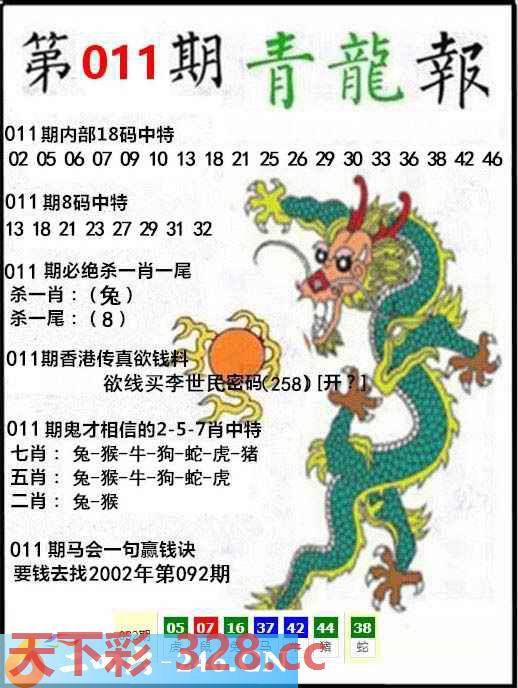 第011期青龍報
011期内部18码中特
02 05 06 07 09 10 13 18 21 25 26 29 30 33 36 38 42 46
011期8码中特
13 18 21 23 27 29 31 32
011期必绝杀一肖一尾
杀一肖：(兔)
杀一尾：(8)
011期香港传真欲钱料
欲线买李世民密码(258)[开?]
011期鬼才相信的2-5-7肖中特
七肖： 兔-猴-牛-狗-蛇-虎-猪
五肖： 兔-猴-牛-狗-蛇-虎
二肖： 兔-猴
011期马会一句赢钱诀
要钱去找2002年第092期
05 07 16 37 42 44 38
虎 鼠 马 猪 蛇
天下彩-328.cc